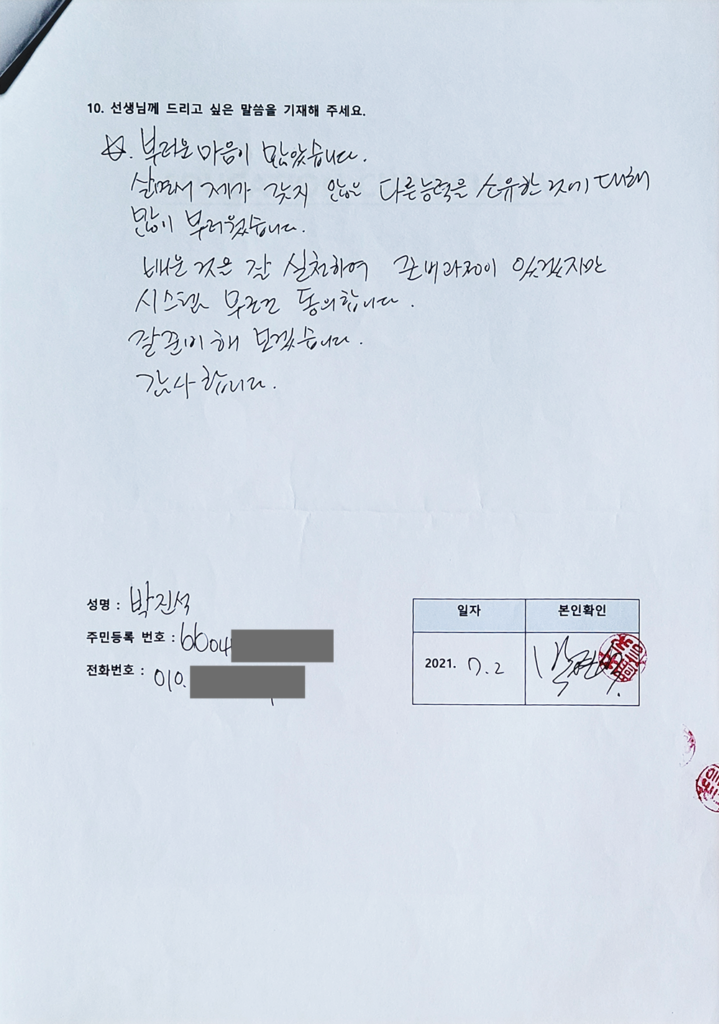 10. 선생님께 드리고 싶은 말씀을 기재해 주세요.
☆. 부러운 마음이 많았습니다.
살면서 제가 갖지 않은 다른능력을 소유한 것에 대해
많이 부러웠습니다.
배운 것은 잘 실천하여 준비과정이 있겠지만
시스템 무조건 동의합니다.
잘 준비해 보겠습니다.
감사합니다.
성명 : 박진석
주민등록 번호 : 6604
전화번호 : 010.
일자 본인확인
2021. 7. 2 박진석